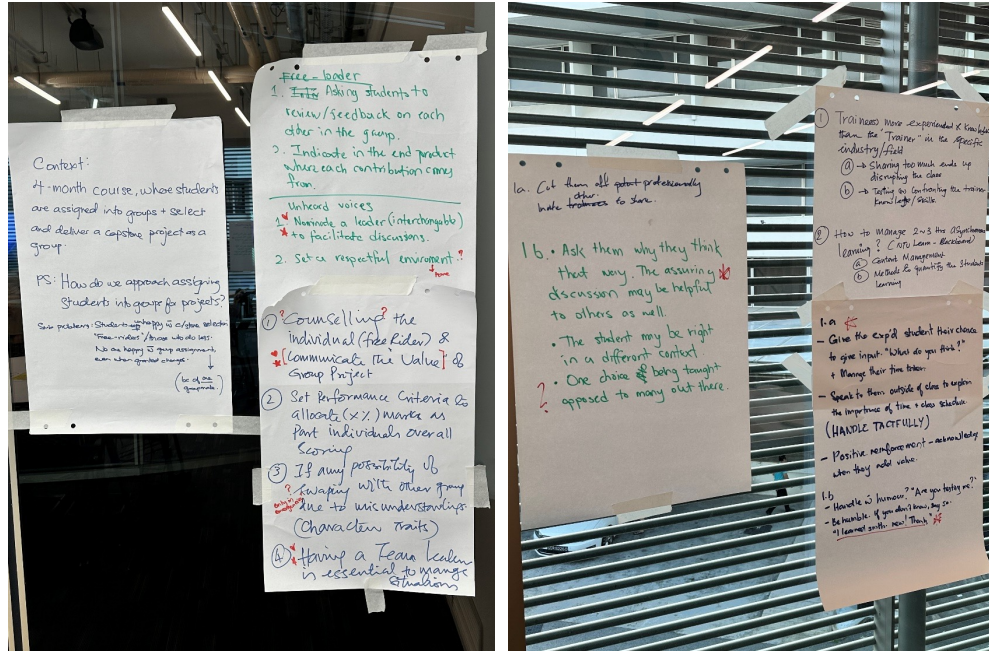 Context:
4-month course, where students
are assigned into groups + select
and deliver a capstone project as a
group.
PS: How do we approach assigning
Students into groups for projects?
Some problems: Students unhappy
"Free-riders"/those who do less.
No one happy group assignment,
even when granted change.
Free-loader
1. Asking students to
review/feedback on each
other in the group.
2. Indicate in the end product
where each contribution comes
from.
Unheard voices
1. Nominate a leader (interchangable)
to facilitate discussions.
2. Set a respectful enviroment ?
① ?Counselling? the
individual (free Rider) &
[Communicate The Value] of
Group Project
② Set Performance Criteria to
allocate (x%) marks as
Part individuals over all
Scoring
③ If any possibility of
? swaping with other group
due to misunderstandings
(Character Traits)
④ Having a Team Leader
is essential to mange
Situations
1a. Cut them off professionally
other
to share.
1b. • Ask them why they think
that way. The assuring
discussion may be helpful
to others as well.
• The student may be right
in a different context.
? • One choice being taught
opposed to many out there.
① Trainees more experienced & knowledge
than the "Trainer" in the specific
industry/field
ⓐ → Sharing too much ends up
disrupting the class
ⓑ → Testing or Confronting the trainer
knowledge/skills.
② How to manage 2~3 hrs Asynchronous
learning? (NTU Learn - Blackboard)
ⓐ Content Management
ⓑ Methods to quantify the students
learning
1.a
- Give the exp'd student their chance
to give input. "What do you think?"
+ Manage their time taken.
- Speak to them outside of class to explain
the importance of time + class schedule.
(HANDLE TACTFULLY)
- Positive reinforcement - acknowledge
when they add value.
1.b
- Handle w humour? "Are you testing me?"
- Be humble. If you don't know, say so.
"I learned smth. new! Thank"